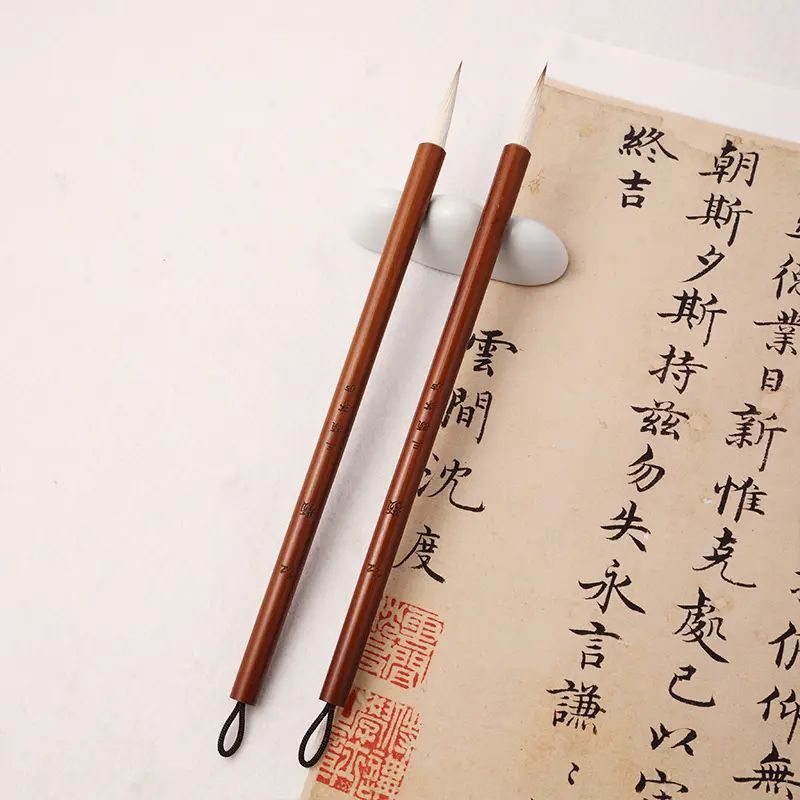 俯仰無
德業日新惟克處已以
朝斯夕斯持茲勿失永言謙〻
終吉
雲間沈度